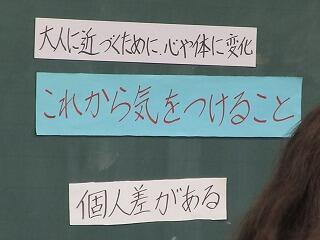 大人に近づくために、心や体に変化
これから気をつけること
個人差がある